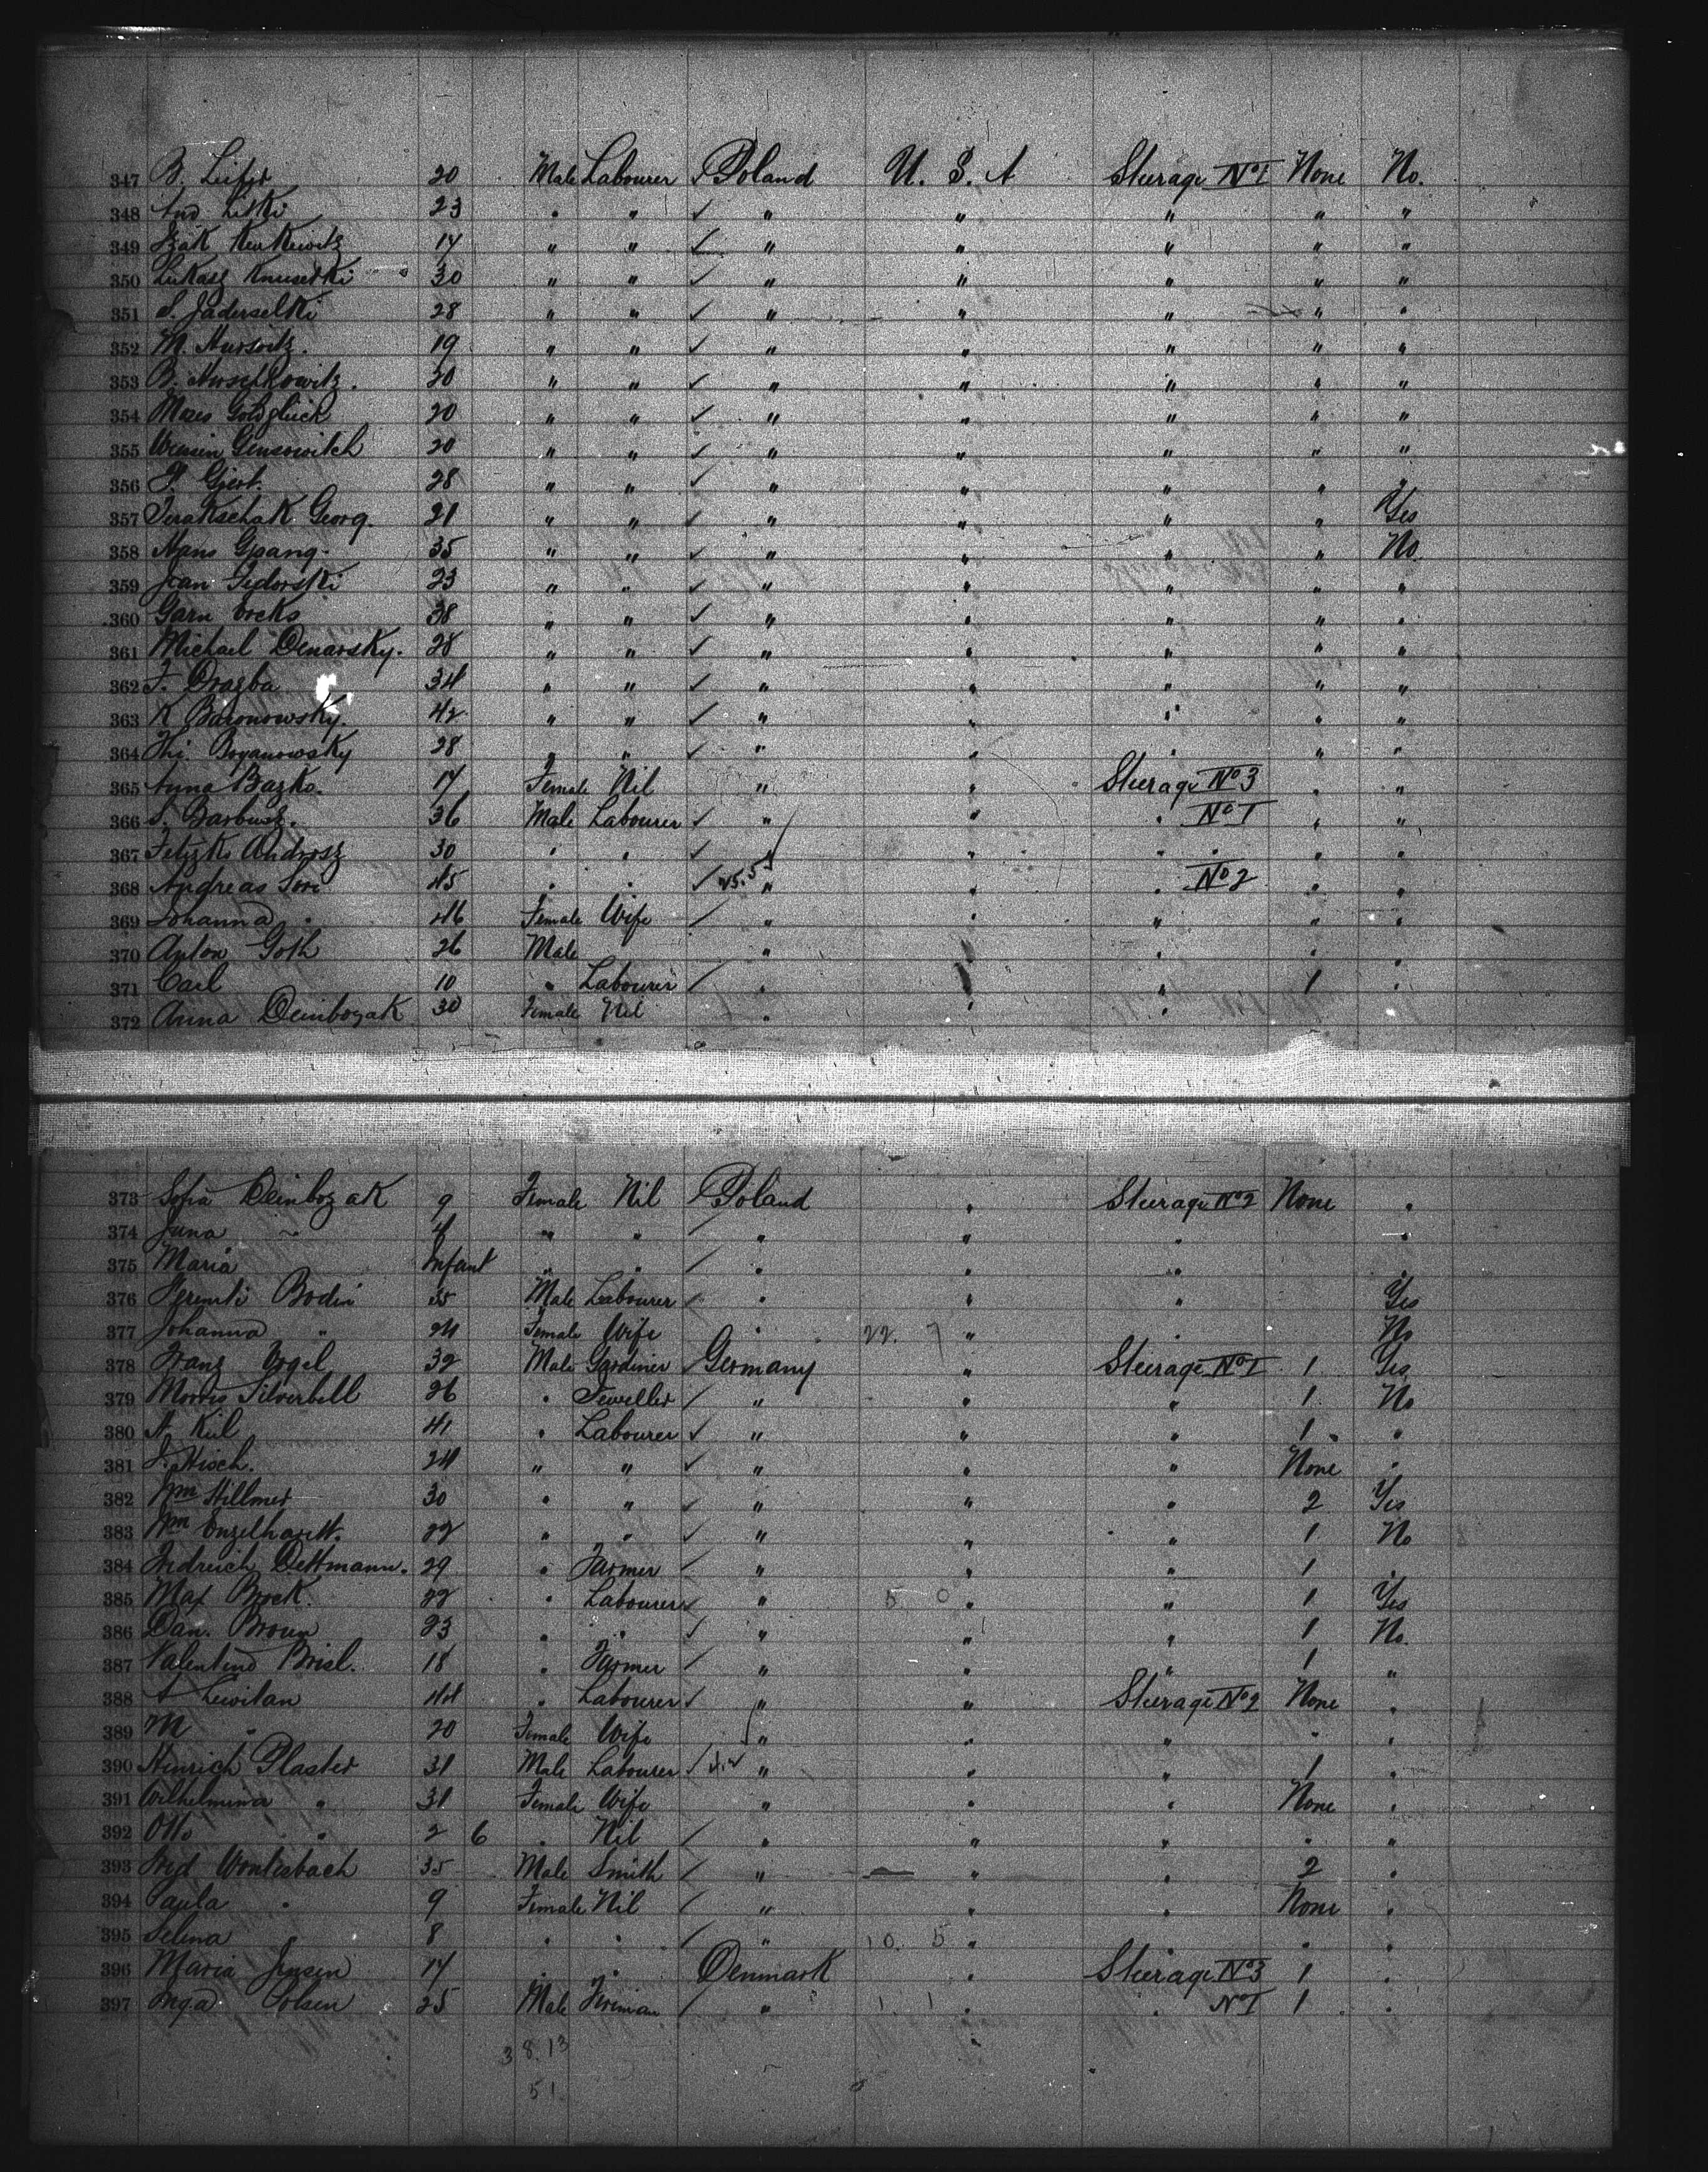 347 B. Leifer 20 Male Labourer ✓ Poland U. S. A Steerage No 1 None No.
348 And. Litki 23 " " ✓ " " " " "
349 Isak Kenkewitz 17 " " ✓ " " " " "
350 Lukasz Knusedki 30 " " ✓ " " " " "
351 S. Jaderselki 28 " " ✓ " " " " "
352 M. Hursvitz. 19 " " ✓ " " " " "
353 B. 20 " " ✓ " " " " "
354 Moses Goldglück 20 " " ✓ " " " " "
355 Gensowitch 20 " " ✓ " " " " "
356 P. Gjert. 28 " " ✓ " " " " "
357 Terakschak Georg. 21 " " ✓ " " " " Yes
358 Hans Gpang. 35 " " ✓ " " " " No.
359 Jean Fedorski 23 " " ✓ " " " " "
360 Garn 38 " " ✓ " " " " "
361 Michael Denarsky. 28 " " ✓ " " " " "
362 F. Dragba 34 " " ✓ " " " " "
363 K Baronowsky. 42 " " ✓ " " " " "
364 Thi. Boganowsky 28 " " ✓ " " " " "
365 Anna Bazko. 17 Female Nil " " Steerage No 3 " "
366 S. Barbusz. 36 Male Labourer ✓ " " " No 1 " "
367 Fetyzko Andrysz 30 " " ✓ " " " " " "
368 Andreas Sori 45 " " ✓ 45.5 " " " No 2 " "
369 Johanna " 46 Female Wife / " " " " "
370 Anton Goth 26 Male " " " " "
371 Carl 10 " Labourer / " " " 1 "
372 Anna Deinbozak 30 Female Nil " " "
373 Sofia Deinbozak 9 Female Nil / Poland " Steerage No 2 None "
374 Juna " 4 " " / " " " "
375 Maria Infant " " / " " " "
376 Bodin 35 Male Labourer / " " " Yes
377 Johanna " 24 Female Wife " 22. 7 " " No
378 Franz Vogel 32 Male Gardiner / Germany " Steerage No 1 1 Yes
379 Morris Silverbell 26 " Jeweller / " " " 1 No
380 A. Kiel 41 " Labourer ✓ " " " 1 "
381 J. Hisch. 24 " " ✓ " " " None "
382 Wm Hillmer 30 " " ✓ " " " 2 Yes
383 Wm Engelhardt. 22 " " ✓ " " " 1 No
384 Fredreich Dettmann. 29 " Farmer / " " " 1 "
385 Max Bock. 22 " Labourer ✓ " 5 0 " " 1 Yes
386 Dan. Broun 23 " " ✓ " " " 1 No.
387 Valentino Brisl. 18 " Farmer / " " " 1 "
388 A Lewitan 44 " Labourer ✓ " " Steerage No 2 None "
389 M " 20 Female Wife " " " " "
390 Heinrich Plaster 31 Male Labourer ✓ " " " 1 "
391 Wilhelmina " 31 Female Wife " " " None "
392 Otto " 2 6 " Nil / " " " " "
393 Fred Wontisbach 35 Male Smith / " — " " 2 "
394 Paula " 9 Female Nil / " " " None "
395 Selma " 8 " " / " 10. 5 " " " "
396 Maria Jensen 17 " " Denmark " Steerage No 3 1 "
397 Inga Olsen 25 Male Fireman / " 1. 1 " " No 1 1 "
3 8.13
51.